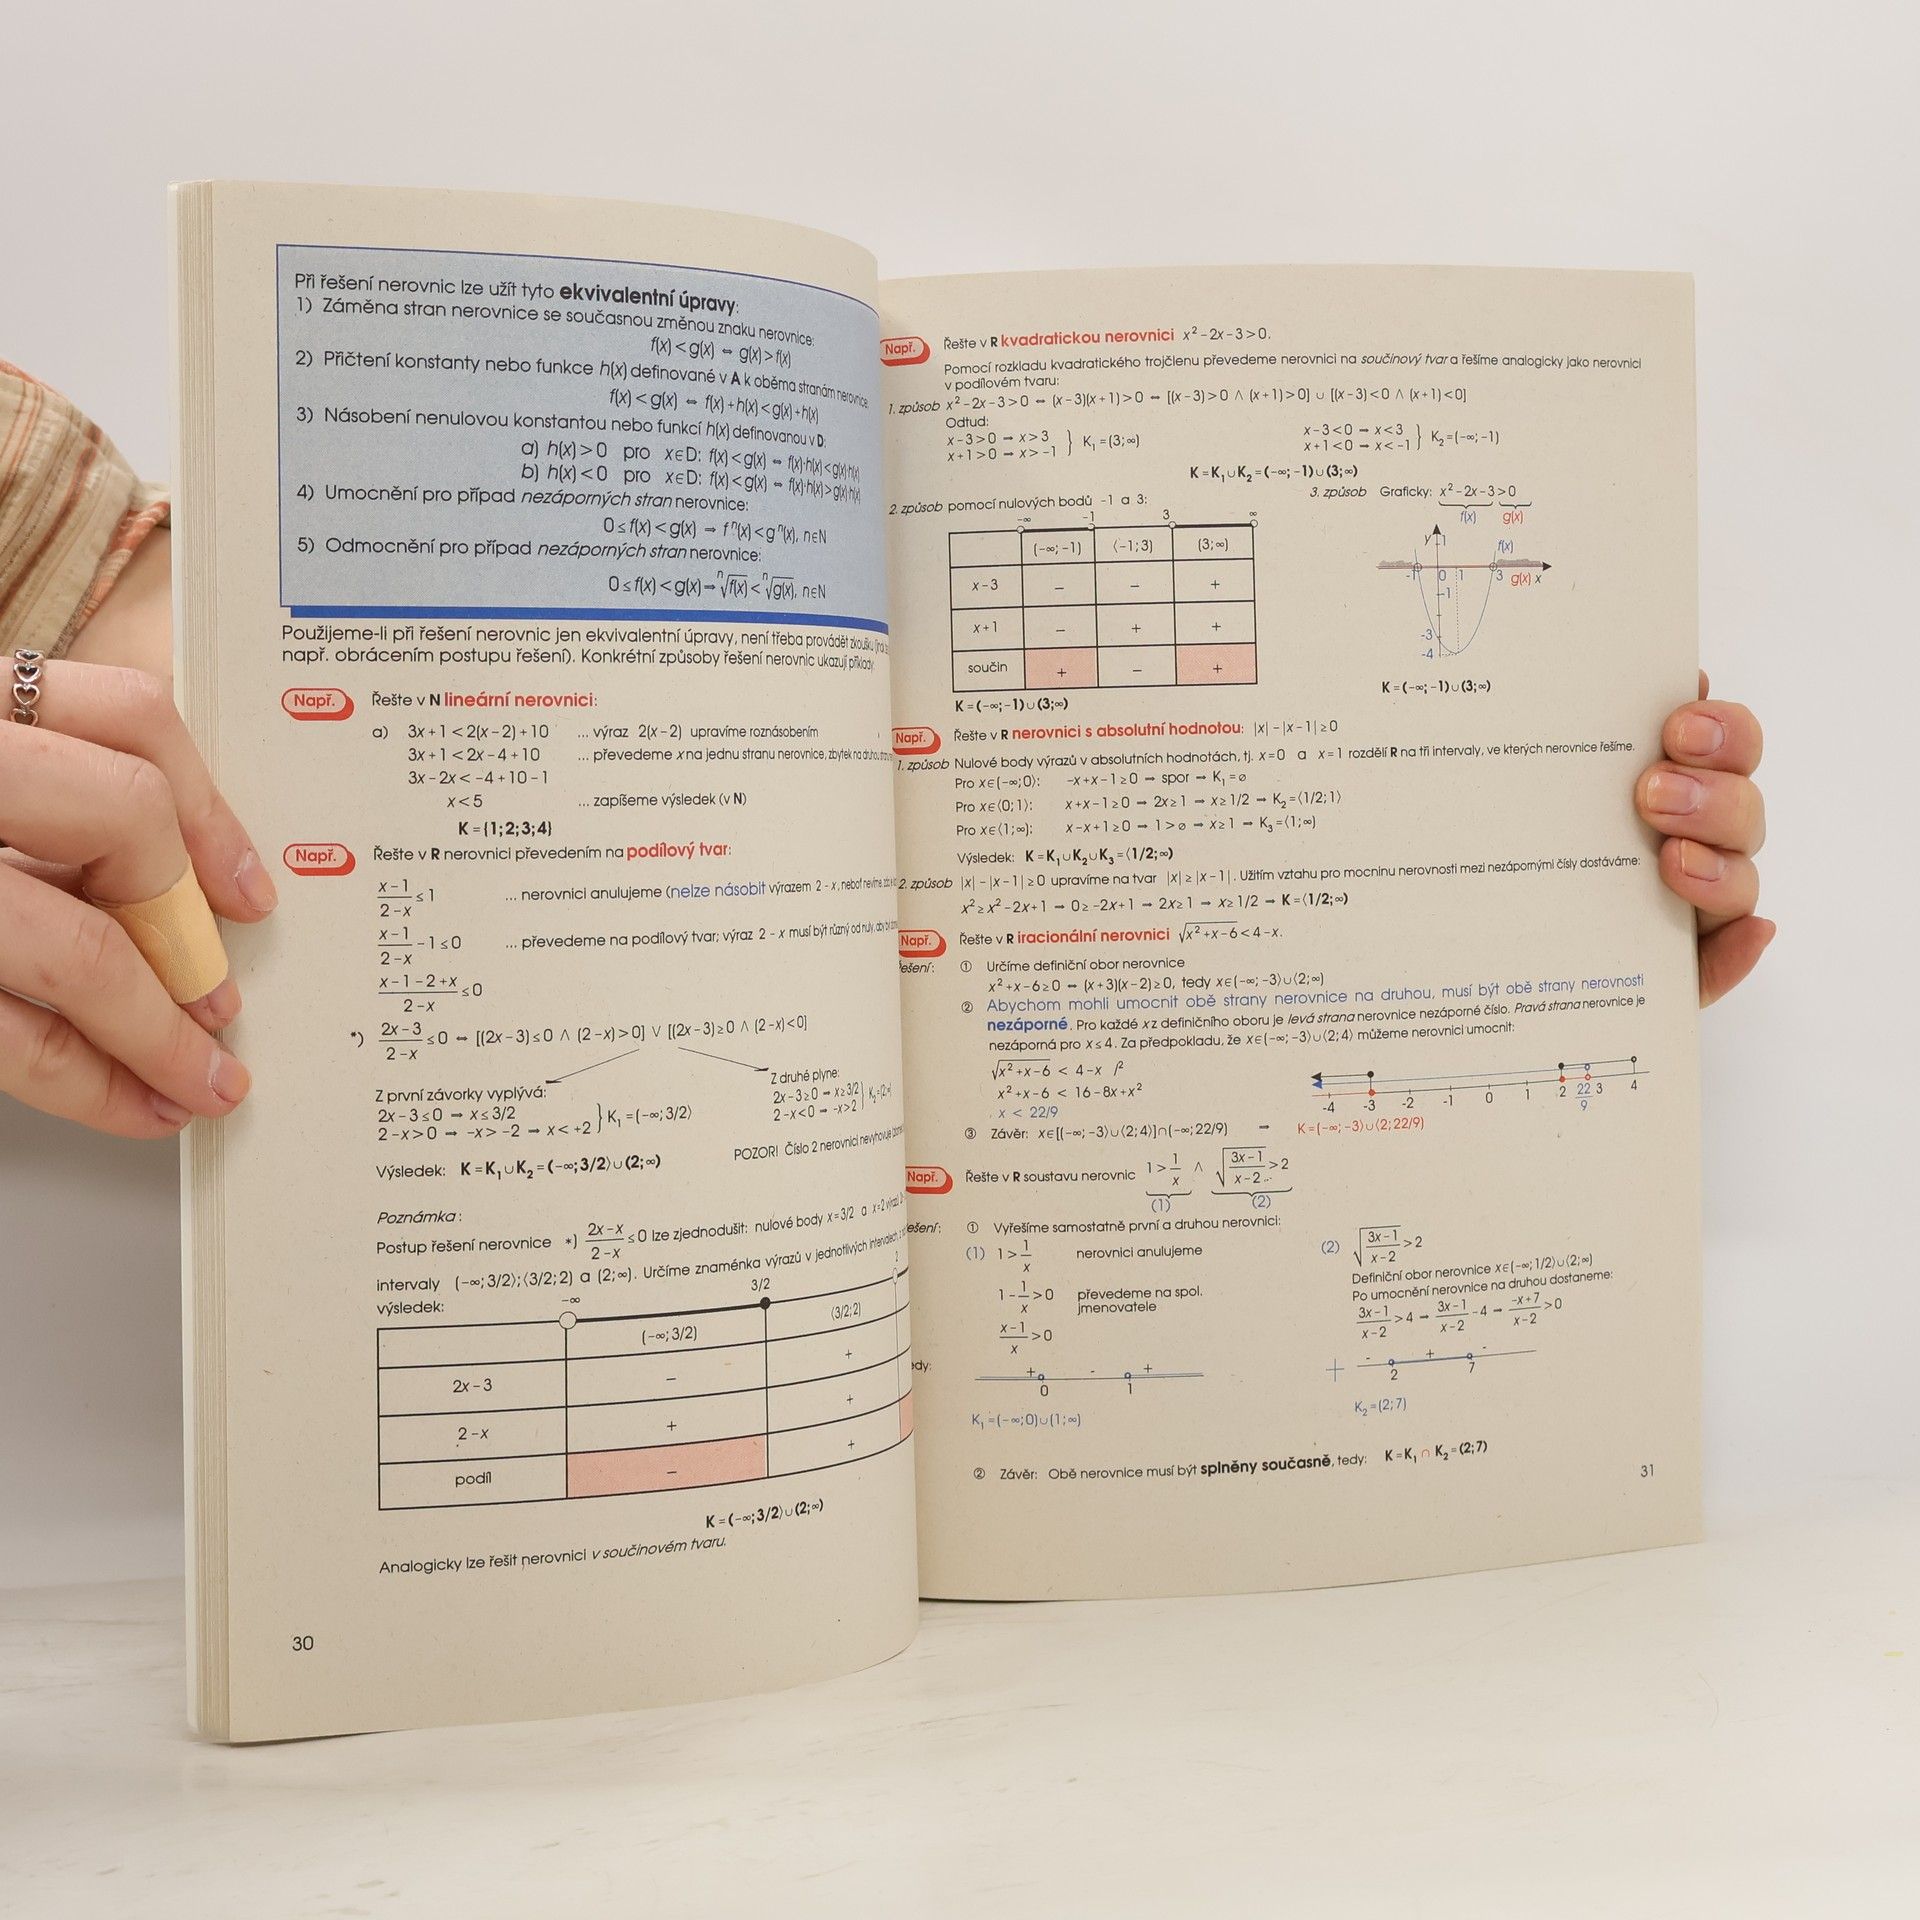 Při řešení nerovnic lze užít tyto ekvivalentní úpravy:
1) Záměna stran nerovnice se současnou změnou znaku nerovnice:
f(x) < g(x) ⇔ g(x) > f(x)
2) Přičtení konstanty nebo funkce h(x) definované v A k oběma stranám nerovnice:
f(x) < g(x) ⇔ f(x) + h(x) < g(x) + h(x)
3) Násobení nenulovou konstantou nebo funkcí h(x) definovanou v D:
a) h(x) > 0 pro x∈D: f(x) < g(x) ⇔ f(x)·h(x) < g(x)·h(x)
b) h(x) < 0 pro x∈D: f(x) < g(x) ⇔ f(x)·h(x) > g(x)·h(x)
4) Umocnění pro případ nezáporných stran nerovnice:
0 ≤ f(x) < g(x) ⇒ fⁿ(x) < gⁿ(x), n∈N
5) Odmocnění pro případ nezáporných stran nerovnice:
0 ≤ f(x) < g(x) ⇒ ⁿ√f(x) < ⁿ√g(x), n∈N
Použijeme-li při řešení nerovnic jen ekvivalentní úpravy, není třeba provádět zkoušku
např. obrácením postupu řešení). Konkrétní způsoby řešení nerovnic ukazují příklady.
Např. Řešte v N lineární nerovnici:
a) 3x + 1 < 2(x - 2) + 10 ... výraz 2(x - 2) upravíme roznásobením
3x + 1 < 2x - 4 + 10 ... převedeme x na jednu stranu nerovnice, zbytek na druhou
3x - 2x < -4 + 10 - 1
x < 5 ... zapíšeme výsledek (v N)
K = {1; 2; 3; 4}
Např. Řešte v R nerovnici převedením na podílový tvar:
(x - 1)/(2 - x) ≤ 1 ... nerovnici anulujeme (nelze násobit výrazem 2 - x, neboť nevíme,
(x - 1)/(2 - x) - 1 ≤ 0 ... převedeme na podílový tvar; výraz 2 - x musí být různý od nuly, aby
(x - 1 - 2 + x)/(2 - x) ≤ 0
*) (2x - 3)/(2 - x) ≤ 0 ⇔ [(2x - 3) ≤ 0 ∧ (2 - x) > 0] ∨ [(2x - 3) ≥ 0 ∧ (2 - x) < 0]
Z první závorky vyplývá:
2x - 3 ≤ 0 ⇒ x ≤ 3/2
2 - x > 0 ⇒ -x > -2 ⇒ x < +2 } K₁ = (-∞; 3/2⟩
Z druhé plyne:
2x - 3 ≥ 0 ⇒ x ≥ 3/2
2 - x < 0 ⇒ -x > 2 } K₂ = (2; ∞)
POZOR! Číslo 2 nerovnici nevyhovuje
Výsledek: K = K₁ ∪ K₂ = (-∞; 3/2⟩ ∪ (2; ∞)
Poznámka:
Postup řešení nerovnice *) (2x - x)/(2 - x) ≤ 0 lze zjednodušit: nulové body x = 3/2 a x = 2 výrazů
intervaly (-∞; 3/2⟩; ⟨3/2; 2) a (2; ∞). Určíme znaménka výrazů v jednotlivých intervalech,
výsledek:
-∞ 3/2 2
(-∞; 3/2⟩ ⟨3/2; 2)
2x - 3 - +
2 - x + +
podíl - +
K = (-∞; 3/2⟩ ∪ (2; ∞)
Analogicky lze řešit nerovnici v součinovém tvaru.
30
Např. Řešte v R kvadratickou nerovnici x² - 2x - 3 > 0.
Pomocí rozkladu kvadratického trojčlenu převedeme nerovnici na součinový tvar a řešíme analogicky jako nerovnici
v podílovém tvaru:
1. způsob x² - 2x - 3 > 0 ⇔ (x - 3)(x + 1) > 0 ⇔ [(x - 3) > 0 ∧ (x + 1) > 0] ∪ [(x - 3) < 0 ∧ (x + 1) < 0]
Odtud:
x - 3 > 0 ⇒ x > 3
x + 1 > 0 ⇒ x > -1 } K₁ = (3; ∞)
x - 3 < 0 ⇒ x < 3
x + 1 < 0 ⇒ x < -1 } K₂ = (-∞; -1)
K = K₁ ∪ K₂ = (-∞; -1) ∪ (3; ∞)
2. způsob pomocí nulových bodů -1 a 3:
-∞ -1 3 ∞
(-∞; -1) (-1; 3) (3; ∞)
x - 3 - - +
x + 1 - + +
součin + - +
K = (-∞; -1) ∪ (3; ∞)
3. způsob Graficky: x² - 2x - 3 > 0
f(x) g(x)
y 1 f(x)
-1 0 1 3 g(x) x
-1
-3
-4
K = (-∞; -1) ∪ (3; ∞)
Např. Řešte v R nerovnici s absolutní hodnotou: |x| - |x - 1| ≥ 0
1. způsob Nulové body výrazů v absolutních hodnotách, tj. x = 0 a x = 1 rozdělí R na tři intervaly, ve kterých nerovnice řešíme.
Pro x∈(-∞; 0): -x + x - 1 ≥ 0 ⇒ spor ⇒ K₁ = ø
Pro x∈⟨0; 1): x + x - 1 ≥ 0 ⇒ 2x ≥ 1 ⇒ x ≥ 1/2 ⇒ K₂ = ⟨1/2; 1)
Pro x∈⟨1; ∞): x - x + 1 ≥ 0 ⇒ 1 > ø ⇒ x ≥ 1 ⇒ K₃ = ⟨1; ∞)
Výsledek: K = K₁ ∪ K₂ ∪ K₃ = ⟨1/2; ∞)
2. způsob |x| - |x - 1| ≥ 0 upravíme na tvar |x| ≥ |x - 1|. Užitím vztahu pro mocninu nerovnosti mezi nezápornými čísly dostáváme:
x² ≥ x² - 2x + 1 ⇒ 0 ≥ -2x + 1 ⇒ 2x ≥ 1 ⇒ x ≥ 1/2 ⇒ K = ⟨1/2; ∞)
Např. Řešte v R iracionální nerovnici √(x² + x - 6) < 4 - x.
① Určíme definiční obor nerovnice
x² + x - 6 ≥ 0 ⇔ (x + 3)(x - 2) ≥ 0, tedy x∈(-∞; -3⟩ ∪ ⟨2; ∞)
② Abychom mohli umocnit obě strany nerovnice na druhou, musí být obě strany nerovnosti
nezáporné. Pro každé x z definičního oboru je levá strana nerovnice nezáporné číslo. Pravá strana nerovnice je
nezáporná pro x ≤ 4. Za předpokladu, že x∈(-∞; -3⟩ ∪ ⟨2; 4⟩ můžeme nerovnici umocnit:
√(x² + x - 6) < 4 - x /²
x² + x - 6 < 16 - 8x + x²
x < 22/9
-4 -3 -2 -1 0 1 2 22/9 3 4
③ Závěr: x∈[(-∞; -3⟩ ∪ ⟨2; 4⟩] ∩ (-∞; 22/9) ⇒ K = (-∞; -3⟩ ∪ ⟨2; 22/9)
Např. Řešte v R soustavu nerovnic 1 > 1/x ∧ √((3x - 1)/(x - 2)) > 2
(1) (2)
① Vyřešíme samostatně první a druhou nerovnici:
(1) 1 > 1/x nerovnici anulujeme
1 - 1/x > 0 převedeme na spol.
jmenovatele
(x - 1)/x > 0
+ - +
0 1
K₁ = (-∞; 0) ∪ (1; ∞)
(2) √((3x - 1)/(x - 2)) > 2
Definiční obor nerovnice x∈(-∞; 1/2⟩ ∪ (2; ∞)
Po umocnění nerovnice na druhou dostaneme:
(3x - 1)/(x - 2) > 4 ⇒ (3x - 1)/(x - 2) - 4 ⇒ (-x + 7)/(x - 2) > 0
- + -
2 7
K₂ = (2; 7)
② Závěr: Obě nerovnice musí být splněny současně, tedy: K = K₁ ∩ K₂ = (2; 7)
31